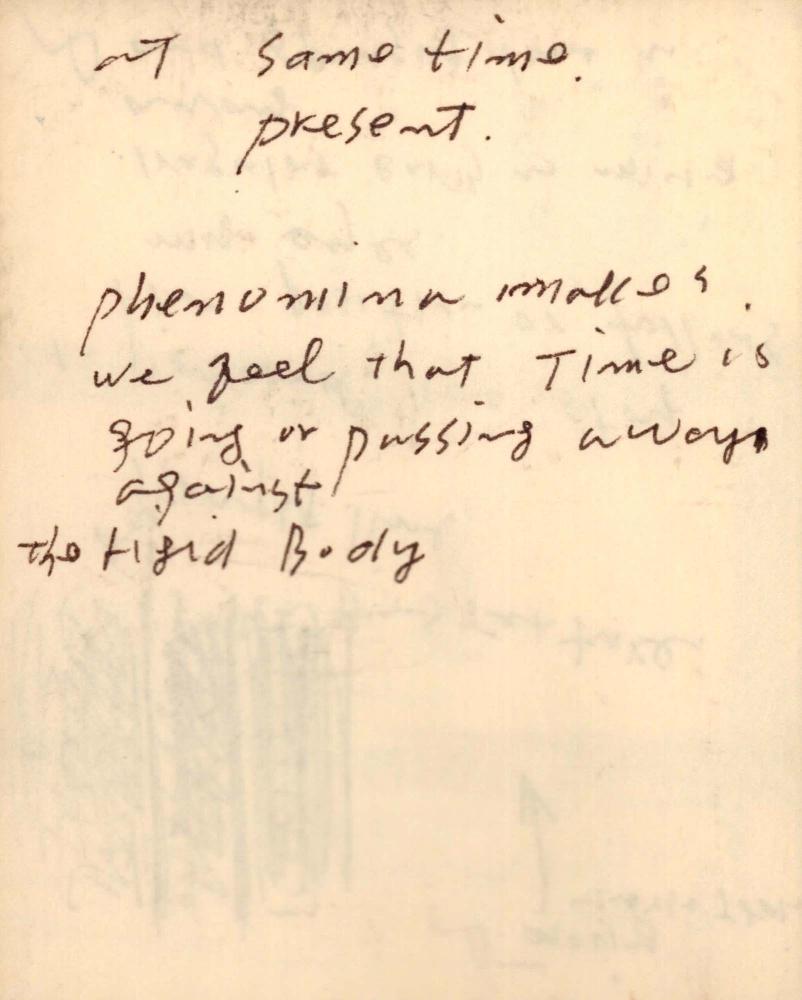 at same time.
present.
phenomina makes.
we feel that Time is
going or passing away
against
the rigid Body